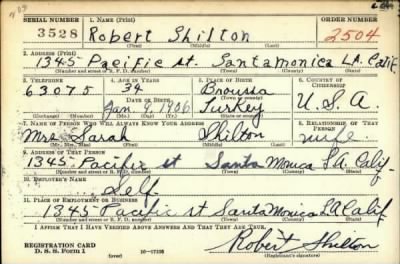 SERIAL NUMBER 1. NAME (Print) ORDER NUMBER
3528 Robert Shilton 2504
(First) (Middle) (Last)
2. ADDRESS (Print)
1345 Pacific st. Santa monica L.A. Calif.
(Number and street or R. F. D. number) (Town) (County) (State)
3. TELEPHONE 4. AGE IN YEARS 5. PLACE OF BIRTH 6. COUNTRY OF CITIZENSHIP
63075 34 Broussa
DATE OF BIRTH (Town or county)
Jan. 9, 1906 Turkey U.S.A.
(Mo.) (Day) (Yr.) (State or country)
7. NAME OF PERSON WHO WILL ALWAYS KNOW YOUR ADDRESS 8. RELATIONSHIP OF THAT PERSON
Mrs Sarah Shilton wife
(Mr., Mrs., Miss) (First) (Middle) (Last)
9. ADDRESS OF THAT PERSON
1345 Pacific st Santa Monica L.A. Calif.
(Number and street or R. F. D. number) (Town) (County) (State)
10. EMPLOYER'S NAME
Self
11. PLACE OF EMPLOYMENT OR BUSINESS
1345 Pacific st Santa Monica L.A Calif
(Number and street or R. F. D. number) (Town) (County) (State)
I AFFIRM THAT I HAVE VERIFIED ABOVE ANSWERS AND THAT THEY ARE TRUE.
REGISTRATION CARD
D. S. S. Form 1 Robert Shilton
(Registrant's signature)